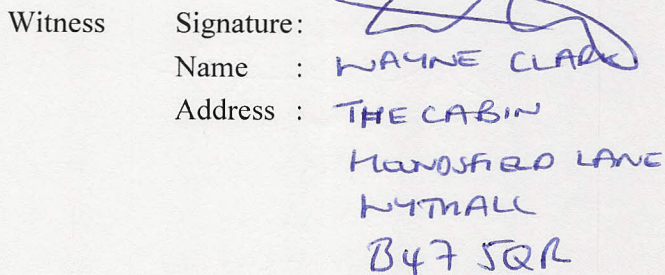 Witness Signature:
Name : WAYNE CLARK
Address : THE CABIN
HOUNDSFIELD LANE
WYTHALL
B47 5QR